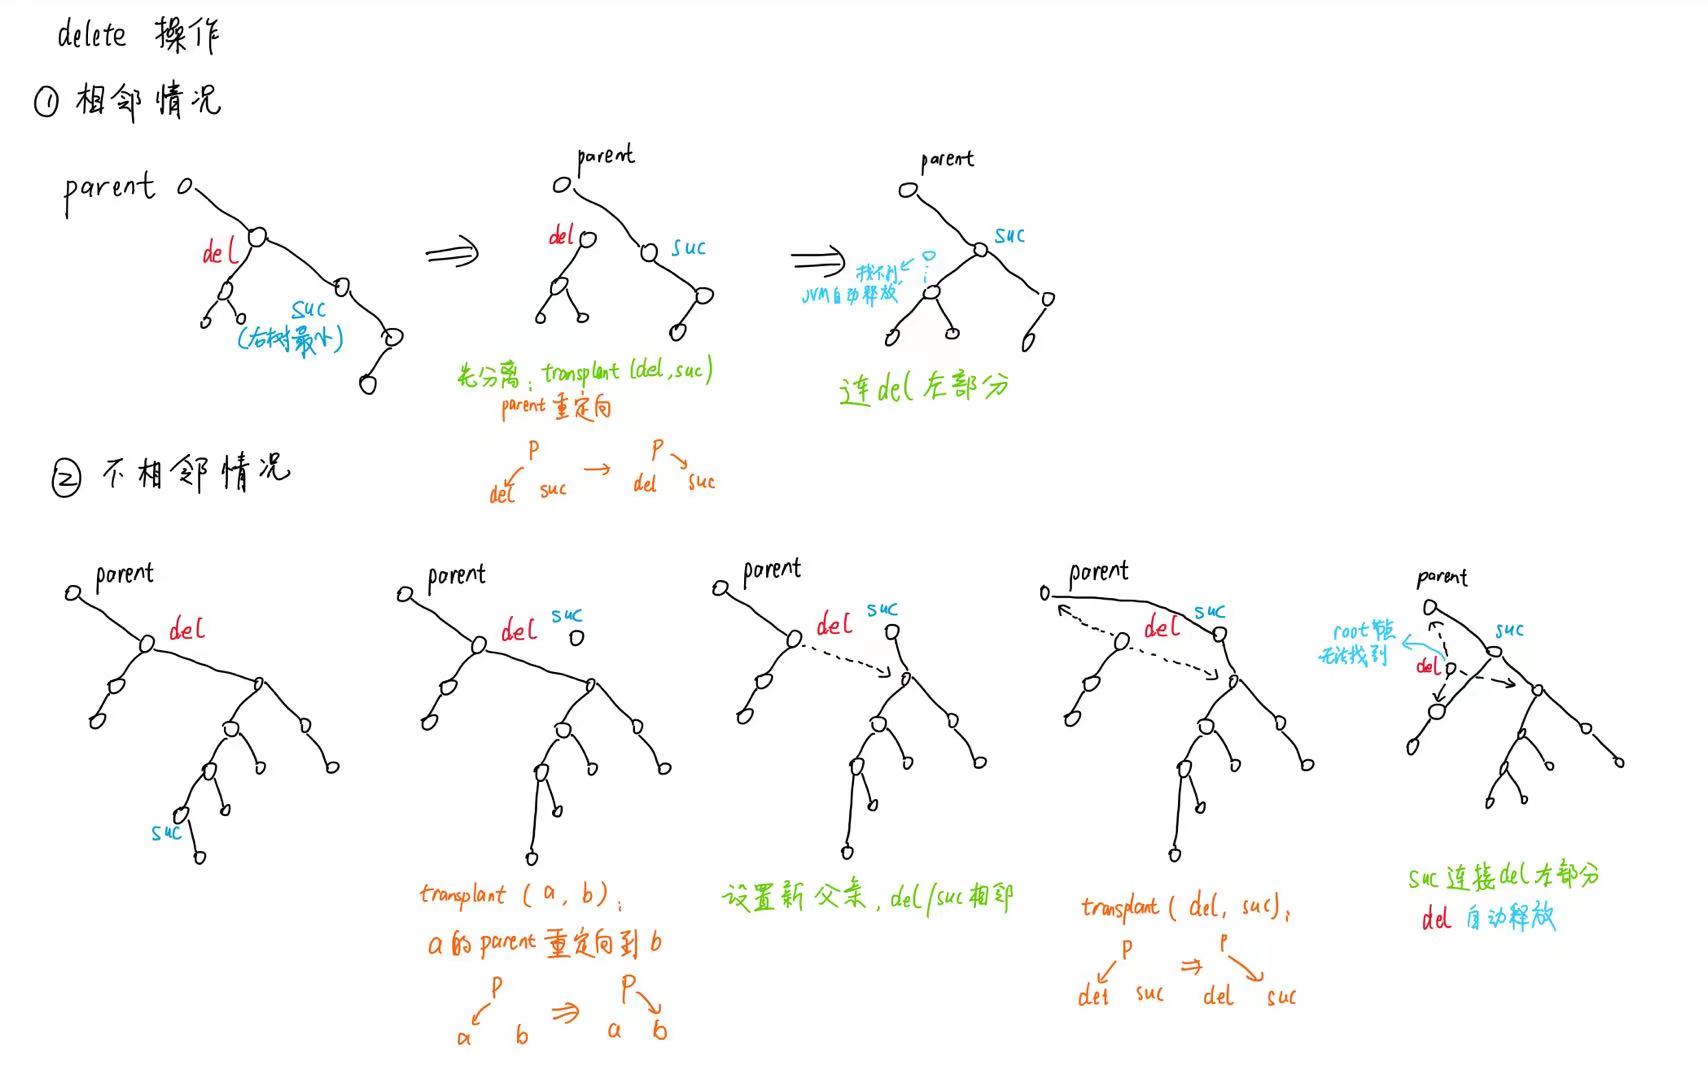 delete 操作
① 相邻情况
parent
del
suc
(右树最小)
parent
del
suc
先分离: transplant (del, suc)
parent 重定向
P
del suc
→
P
del suc
parent
suc
找不到
JVM自动释放
连 del 左部分
② 不相邻情况
parent
del
suc
parent
del
suc
transplant (a, b):
a 的 parent 重定向到 b
P
a b
⇒
P
a b
parent
del
suc
设置新父亲, del/suc 相邻
parent
del
suc
transplant ( del, suc):
P
del suc
⇒
P
del suc
parent
suc
root
无法找到
del
suc 连接 del 左部分
del 自动释放